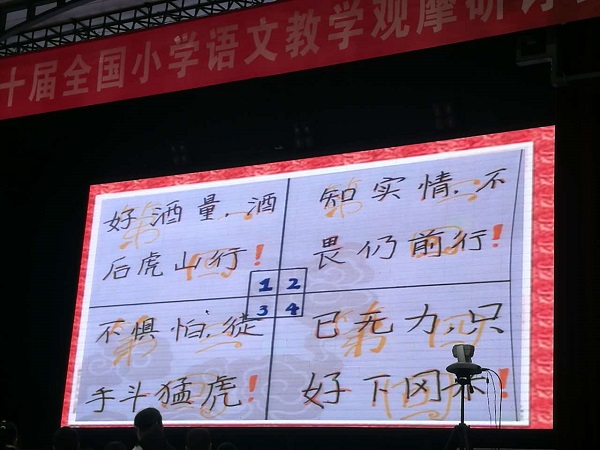 十届全国小学语文教学观摩研讨
好酒量,酒
后虎山行!
知实情,不
畏仍前行!
1 2
3 4
不惧怕,徒
手斗猛虎!
已无力,只
好下冈!